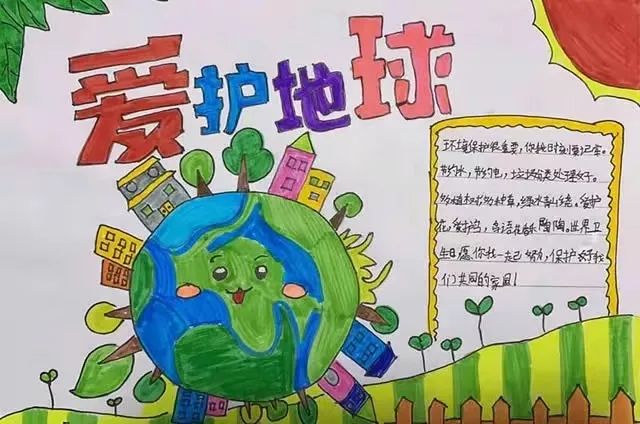 爱护地球
环境保护很重要,你我时刻要记牢。
节约水,节约电,垃圾分类处理好。
多植树花多种草,绿水青山绕。爱护
花,爱护鸟,鸟语花香 陶陶。世界卫
生日愿,你我一起 努力,保护好我
们共同的家园!